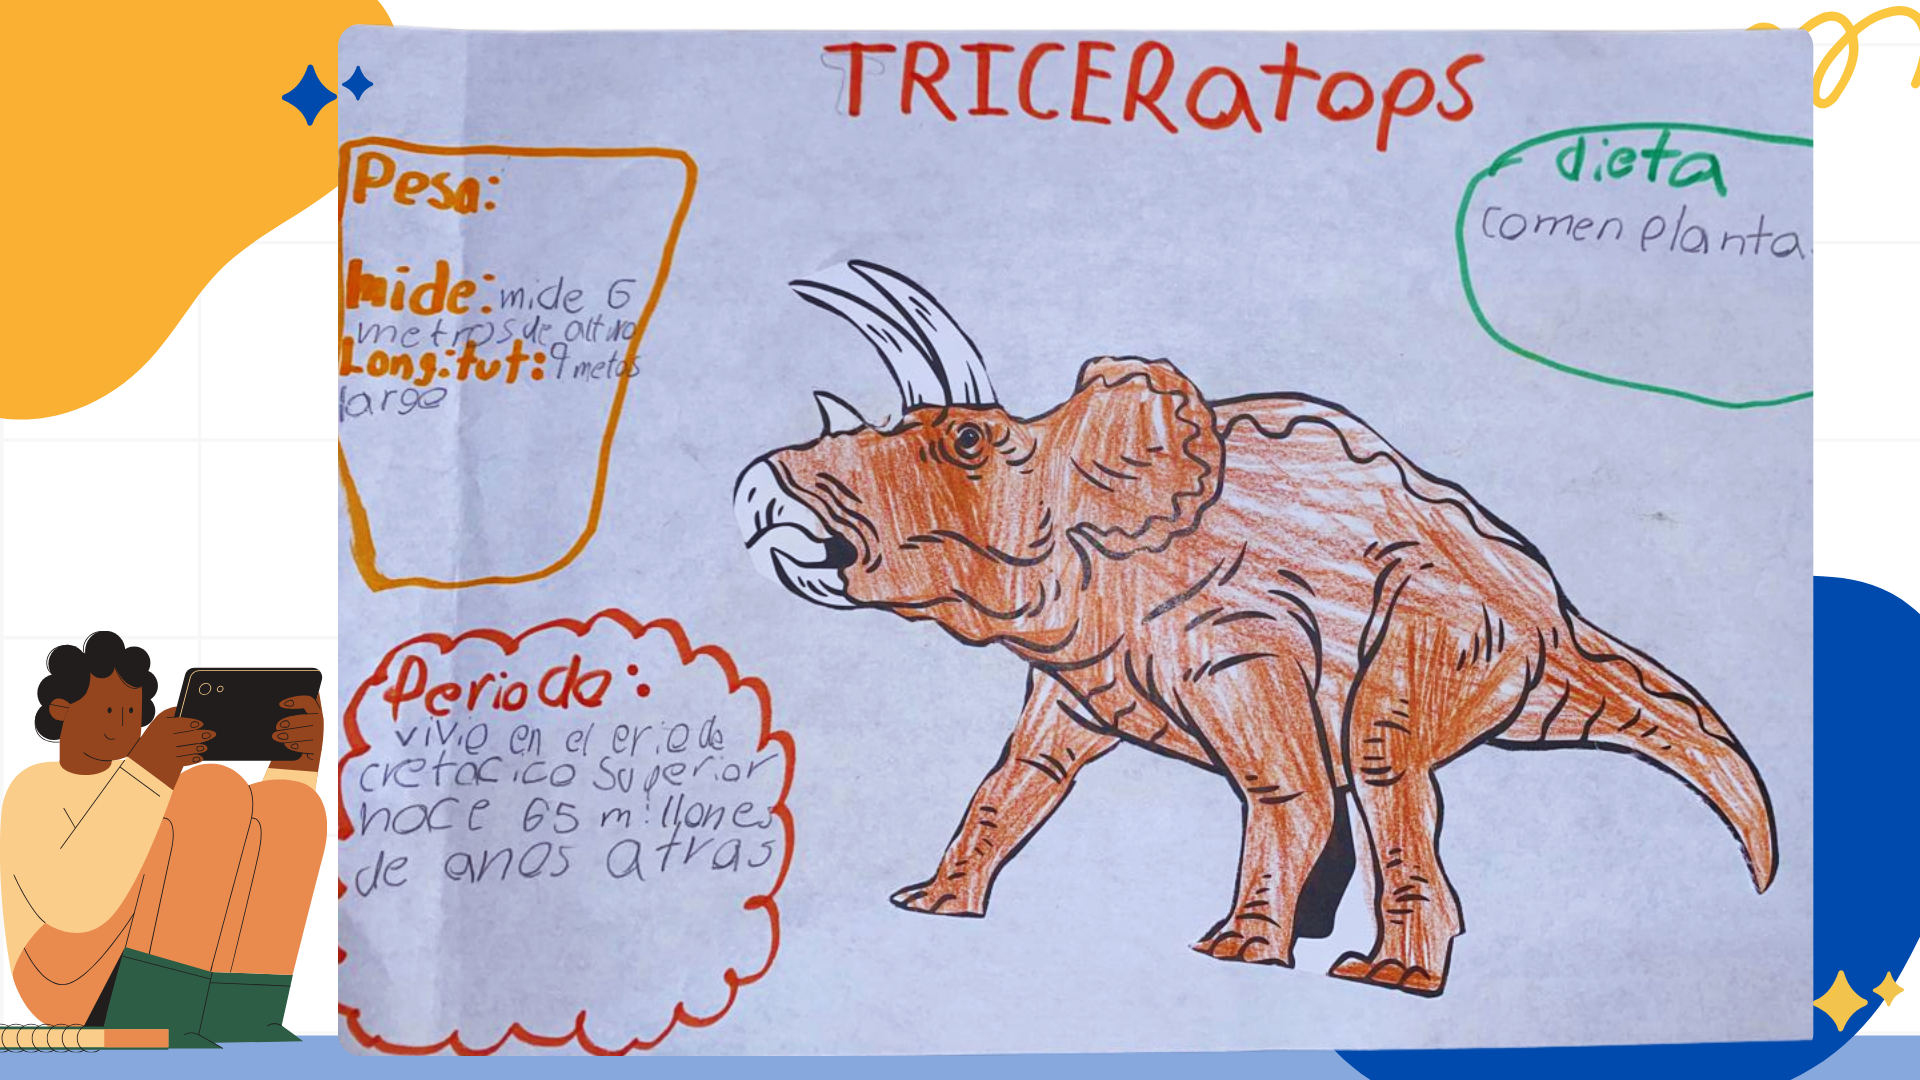 TRICERatops
Peso:
mide: mide 6
metros de altura
Longitut: 9 metos
large
dieta
comen planta
Periodo:
vivio en el eriode
cretacico superior
hace 65 millones
de anos atras